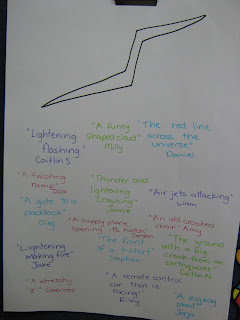 "Lightening
flashing"
Caitlin S
"A funny
shaped cloud"
Milly
"The red line
across the
universe"
Daniel
"A twisting
"Thunder and
lightning
crashing"
Jamie
"Air jets attacking"
Liam
"A gate to a
paddock"
Oleg
"A supply plane
opening its hatch"
Jordan
"An old crooked
chair" Amy
"Lightening
making fire"
Jake
"The front
of a t-shirt"
Stephen
"The ground
with a big
crack from an
earthquake"
Caitlin N
"A stretchy
z"
"A remote control
car that is
racing"
Riley
"A
plant"